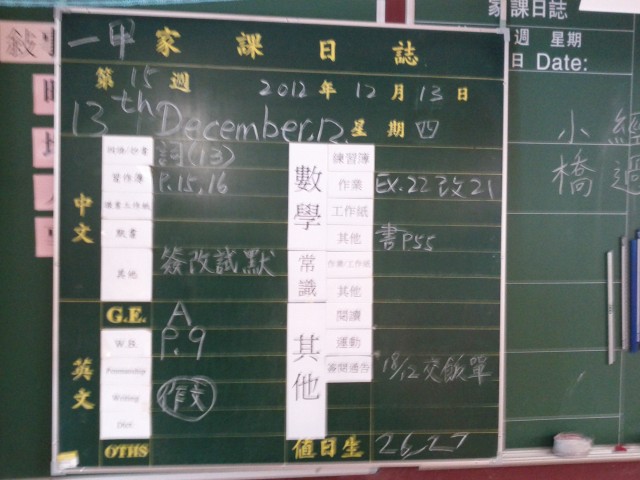 一甲 家課日誌
第15週 2012年12月13日
13th December,12. 星期四
中文
詞(13)
習作簿 P.15,16
默書
其他 簽改試默
數學
練習簿
作業 EX.22 改21
工作紙
其他 書P55
常識
作業/工作紙
其他
英文
G.E. A
W.B. P.9
Penmanship
Writing 作文
Dict.
OTHS
其他
閱讀
運動
簽閱通告 18/12交飯單
值日生 26,27
家課日誌
週 星期
日 Date:
小 經
橋 過